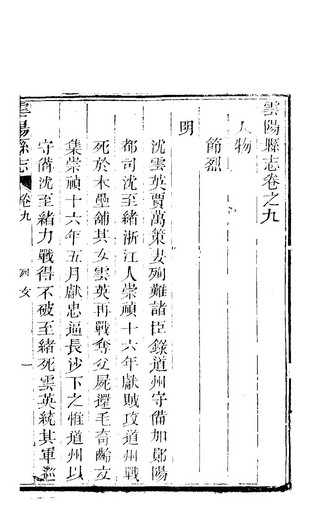 雲陽縣志卷之九
人物
節烈
明
沈雲英賈萬策妻殉難諸臣錄道州守備加鄖陽
都司沈至緒浙江人崇禎十六年獻賊攻道州戰
死於木壘舖其女雲英再戰奪父屍據毛奇齡文
集崇禎十六年五月獻忠逼長沙下之惟道州以
守備沈至緒力戰得不破至緒死雲英統其軍
雲陽縣志
卷九
列女
一